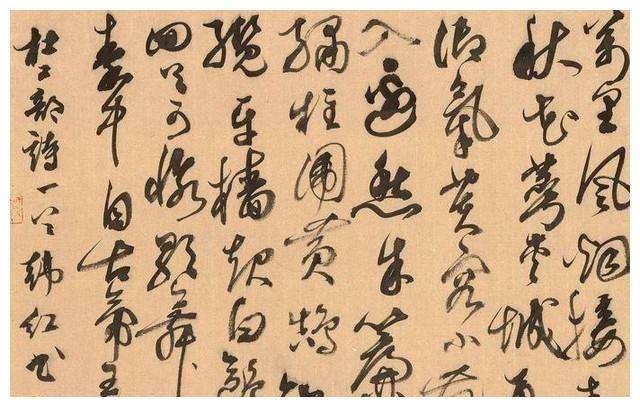 萬里風烟接
秋花萼夾城
御氣芙蓉小苑
入邊愁朱簾
繡柱圍黃鵠
纜牙檣起白鷗
回首可憐歌舞
秦中自古帝王
杜工部詩一首 韩红书